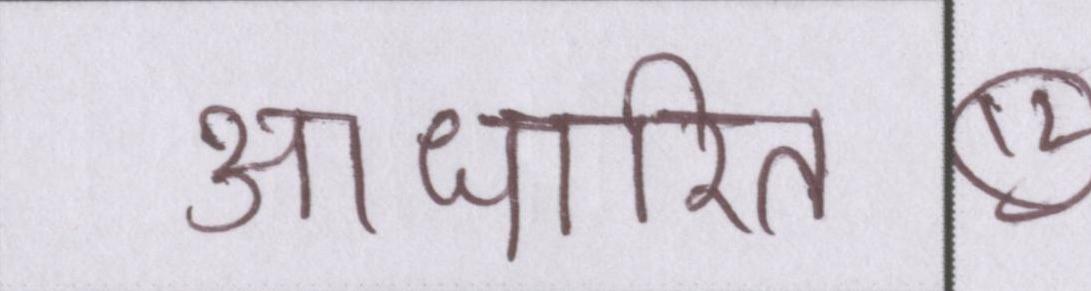 आधारित 12